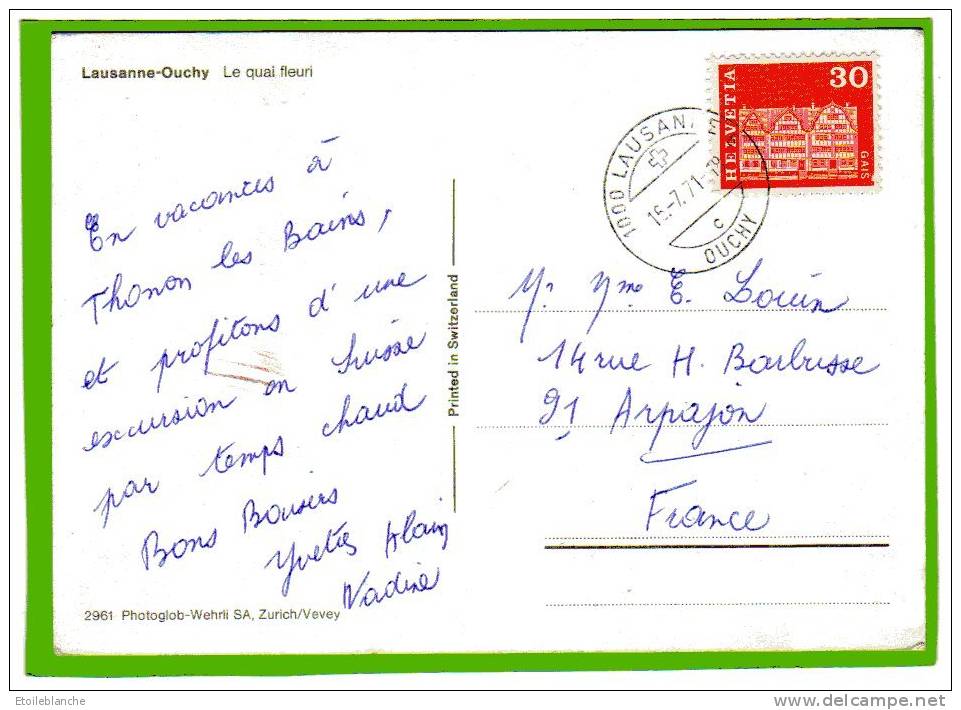 Lausanne-Ouchy Le quai fleuri
En vacances à
Thonon les Bains,
et profitons d'une
excursion en Suisse
par temps chaud
Bons Baisers
Yvette Alain
Nadine
2961 Photoglob-Wehrli SA, Zurich/Vevey
Printed in Switzerland
HELVETIA
30
GAIS
1000 LAUSANNE
15.-7.71
C
OUCHY
Mr Mme E.
14 rue H. Barbusse
91 Arpajon
France
Etoileblanche
www.delcampe.net